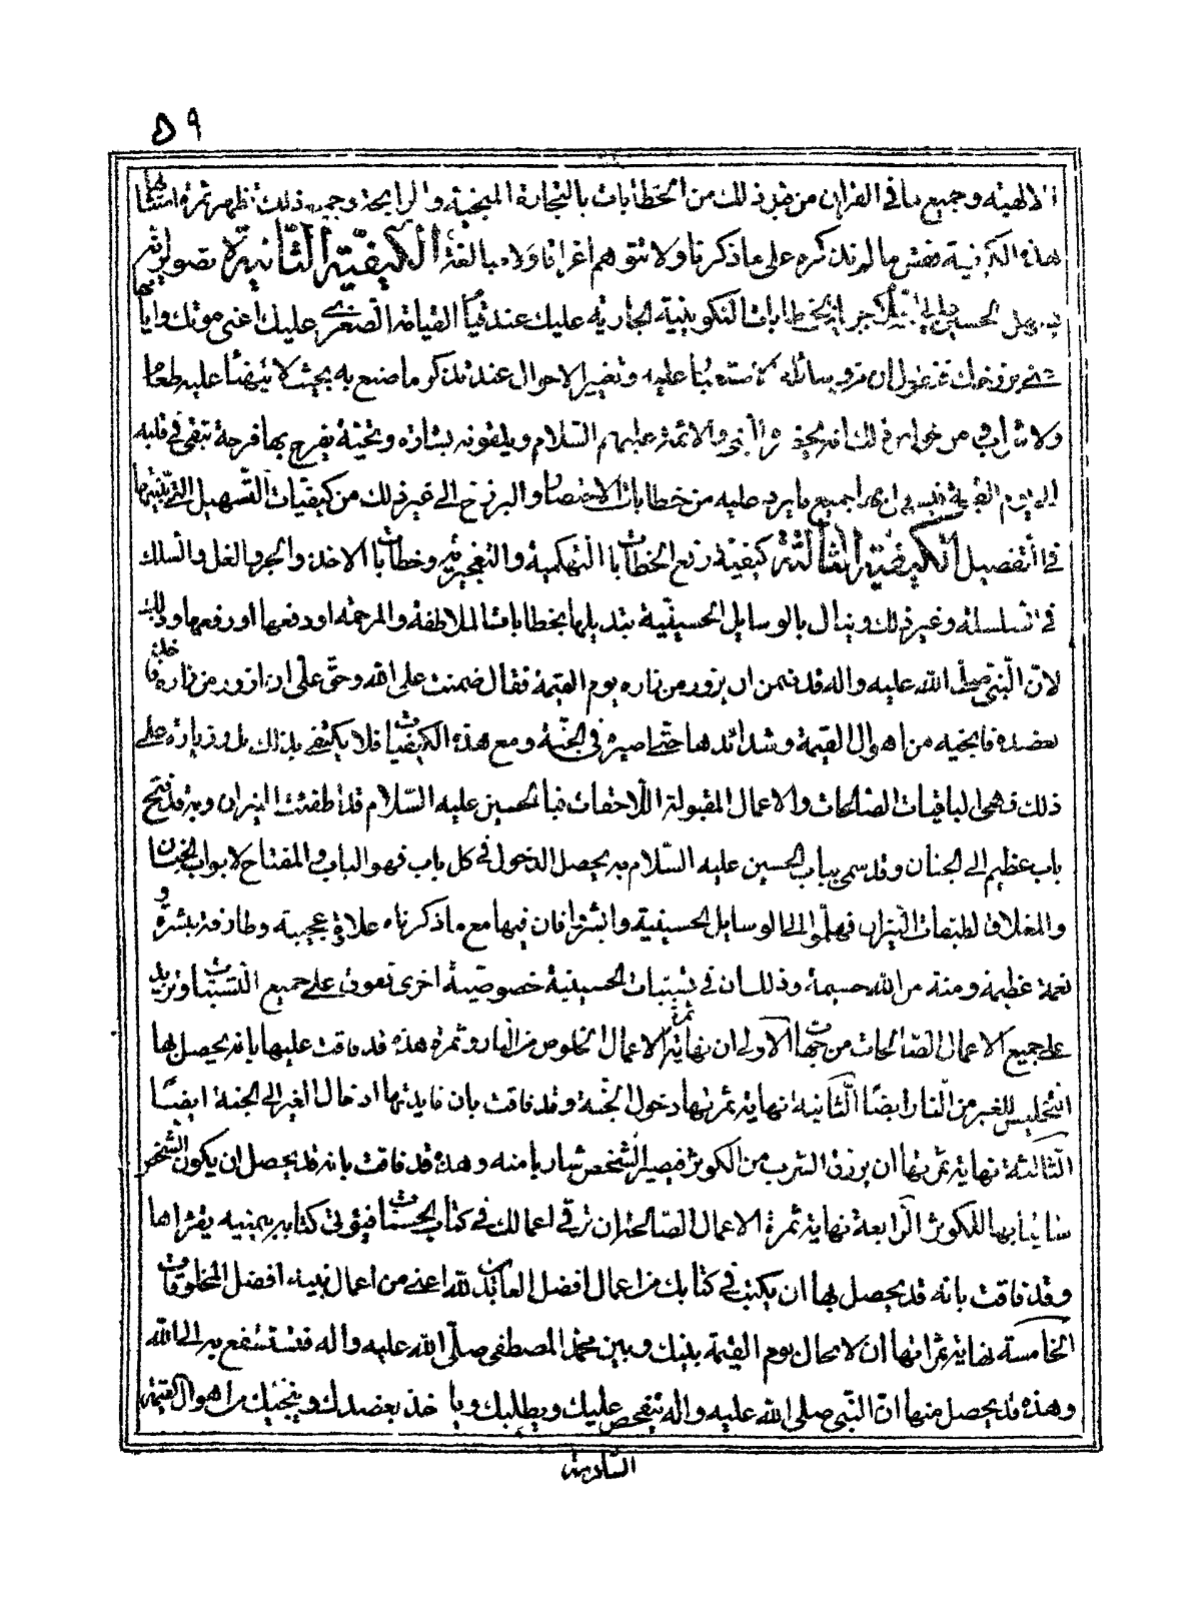 ٥٩
الالهية وجميع ما في القران من قبيل ذلك من الخطابات بالتجارة المنجية والرابحة وجميع ذلك تظهر ثمرة امتثالها
هذه الكيفية ففتش ما لم نذكره على ما ذكرنا ولا تتوهم اغراقا ولا مبالغة الكيفية الثانية تصوير
الحسين الخطابات التكوينية الجارية عليك عند قيام القيامة الصغرى عليك اعنى موتك واياها
وتغير الاحوال عند تذكر ما صنع به بحيث لا يتهنأ عليه طعاما
ولا شراب من خواص ذلك انه يحضره النبي والائمة عليهم السلام ويلقونه بشارة وتحية يفرح بها فرحة تبقى في قلبه
الى يوم القيمة جميع ما يرد عليه من خطابات الاحتضار والبرزخ الى غير ذلك من كيفيات التسهيل التي بينتها
في التفصيل الكيفية الثالثة كيفية رفع الخطابات التهكمية والتعجيزية وخطابات الاخذ والجر والغل والسلك
في السلسلة وغير ذلك وينال بالوسايل الحسينية تبديلها بخطابات الملاطفة والمرحمة او دفعها او رفعها وذلك
لان النبي صلى الله عليه واله قد ضمن ان يزور من زاره يوم القيمة فقال ضمنت على الله وحق على ان ازور من زاره فاخذ
بعضده فانجيه من اهوال القيمة وشدائدها حتى اصيره في الجنة ومع هذه الكيفيات فلا يكتفى بذلك بل وزيارة على
ذلك فهى الباقيات الصالحات والاعمال المقبولة اللاحقات فبالحسين عليه السلام قد اطفئت النيران وبه قد فتح
باب عظيم الى الجنان وقد سمى بباب الحسين عليه السلام به يحصل الدخول في كل باب فهو الباب والمفتاح لابواب الجنان
والمغلاق لطبقات النيران فهلموا الى الوسايل الحسينية وابشروا فان فيها مع ما ذكرناه علاوة عجيبة وطارفة بشرة و
نعمة عظيمة ومنة من الله جسيمة وذلك ان في تسبيبات الحسينية خصوصية اخرى تفوق على جميع التسبيبات وتزيد
على جميع الاعمال الصالحات من جهات الاولى ان نهاية ثمرة الاعمال الخلوص من النار وثمرة هذه قد فاقت عليها بانه يحصل بها
التخليص للغير من النار ايضا الثانية نهاية ثمرتها دخول الجنة وقد فاقت بان فايدتها ادخال الغير الى الجنة ايضا
الثالثة نهاية ثمرتها ان يرزق الشرب من الكوثر فيصير الشخص شاربا منه وهذه قد فاقت بانه قد يحصل ان يكون الشخص
ساقيا بها للكوثر الرابعة نهاية ثمرة الاعمال الصالحة ان ترقى اعمالك في كتاب الحسنات فيؤتى كتابه بيمينه يقراها
وقد فاقت بانه قد يحصل بها ان يكتب في كتابك من اعمال افضل العابدين لله اعنى من اعمال نبيه افضل المخلوقات
الخامسة نهاية ثمراتها ان لا يحال يوم القيمة بينك وبين محمد المصطفى صلى الله عليه واله فتستشفع به الى الله
وهذه قد يحصل منها ان النبي صلى الله عليه واله يتفحص عليك ويطلبك وياخذ بعضدك وينجيك من اهوال القيمة
السادسة